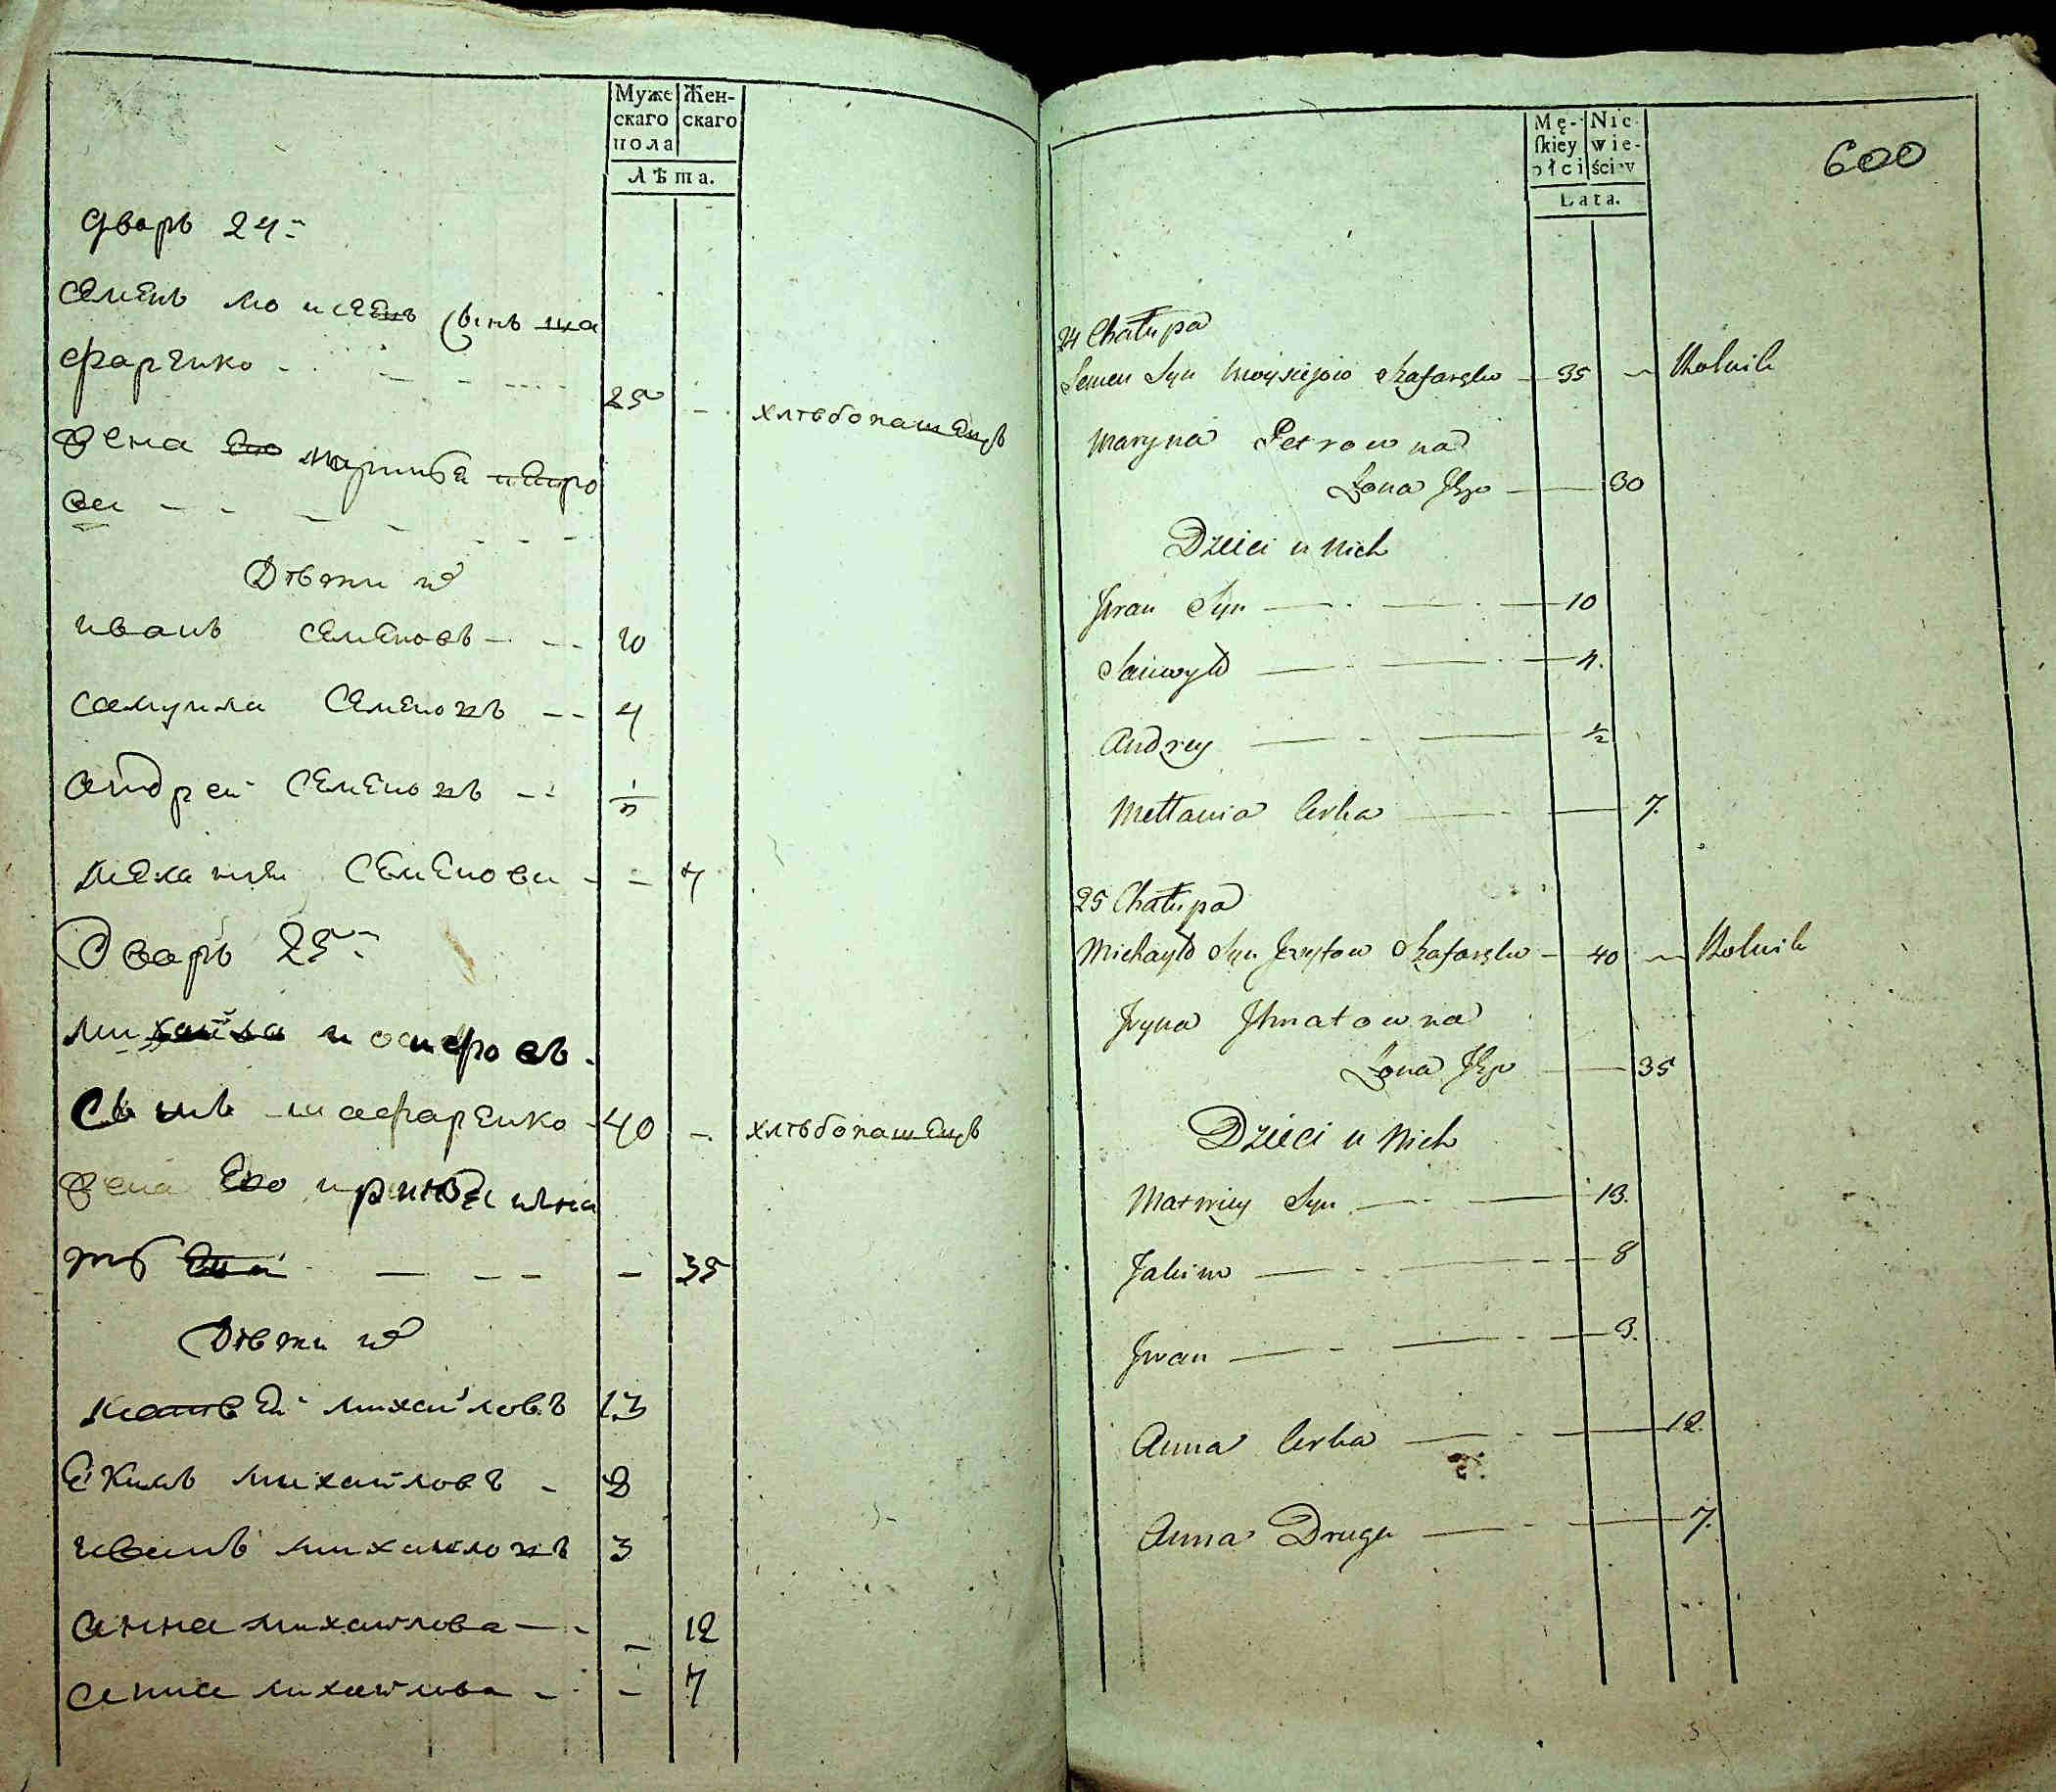 Муже Жен-
скаго скаго
пола
Лѣта.
Дворъ 24:
Семенъ Моисеевъ сынъ Ша
фаренко - 25 - хлѣбопашецъ
Жена Его Марина Петро
ва
Дѣти их
Иванъ Семеновъ - 10
Самуила Семеновъ -- 4
Андрей Семеновъ -- 1/2
Мелания Семенова - - 7
Дворъ 25:
Михайла Иосифовъ
Сынъ Шафаренко - 40 - хлѣбопашецъ
Жена Его Ирина Игна
това - 35
Дѣти их
Матвей Михайловъ 13
Екимъ Михайловъ - 8
Иванъ Михайловъ 3
Анна Михайлова - 12
Анна Михайлова - 7
Mę- Nie
ſkiey wie-
płci ściey
Lata.
600
24 Chałupa
Semen Syn Moysiejow Szafaręko - 35 - Rolnik
Maryna Petrowna
Żona Jego - 30
Dzieci u Nich
Jwan Syn - 10
Samuyło - 4.
Andrey - 1/2
Mełłania Corka - 7.
25 Chałupa
Michayło Syn Jozyfow Szafaręko - 40 - Rolnik
Jryna Jhnatowna
Żona Jego - 35
Dzieci u Nich
Matwiey Syn - 13.
Jakim - 8
Jwan - 3.
Anna Corka - 12.
Anna Druga - 7.